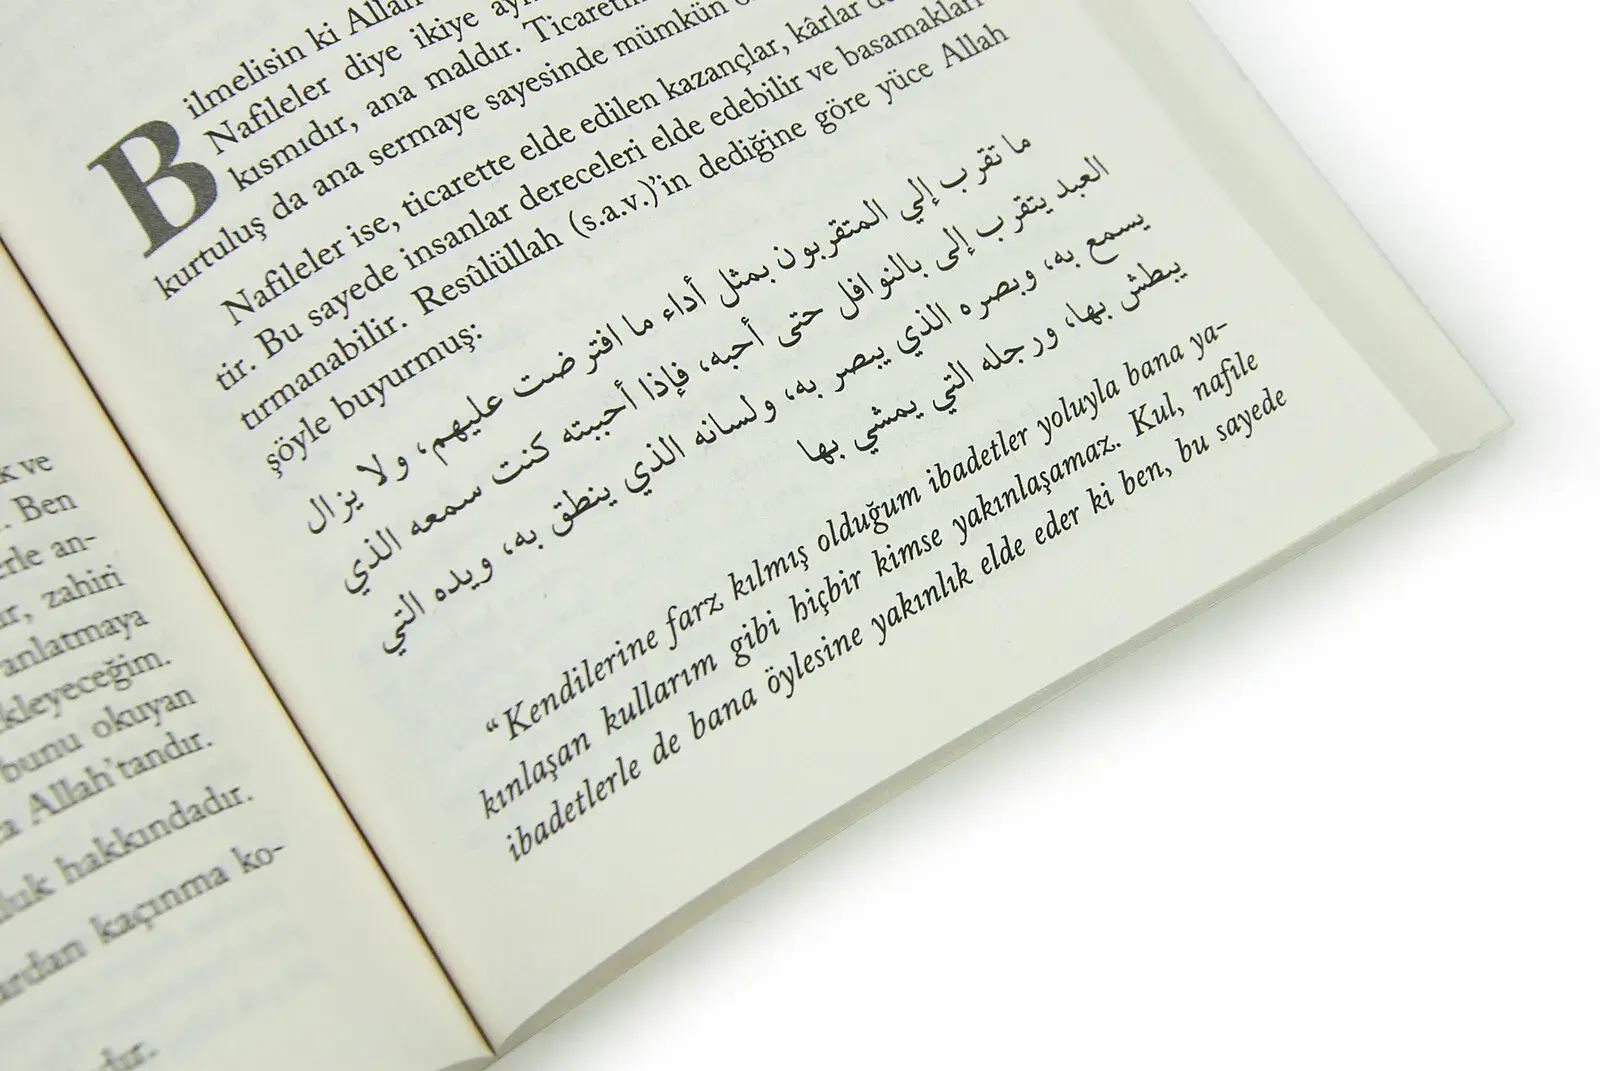 k ve
. Ben
erle an-
ur, zahiri
anlatmaya
kleyeceğim.
bunu okuyan
a Allah'tandır.
luk hakkındadır.
ardan kaçınma ko-
dır.
Bilmelisin ki Allah
Nafileler diye ikiye ay
kısmıdır, ana maldır. Ticaretin
kurtuluş da ana sermaye sayesinde mümkün o
Nafileler ise, ticarette elde edilen kazançlar, kârlar de
tir. Bu sayede insanlar dereceleri elde edebilir ve basamakları
tırmanabilir. Resûlüllah (s.a.v.)'in dediğine göre yüce Allah
şöyle buyurmuş:
ما تقرب إلي المتقربون بمثل أداء ما افترضت عليهم، ولا يزال
العبد يتقرب إلى بالنوافل حتى أحبه، فإذا أحببته كنت سمعه الذي
يسمع به، وبصره الذي يبصر به، ولسانه الذي ينطق به، ويده التي
يبطش بها، ورجله التي يمشي بها
“Kendilerine farz kılmış olduğum ibadetler yoluyla bana ya-
kınlaşan kullarım gibi hiçbir kimse yakınlaşamaz. Kul, nafile
ibadetlerle de bana öylesine yakınlık elde eder ki ben, bu sayede